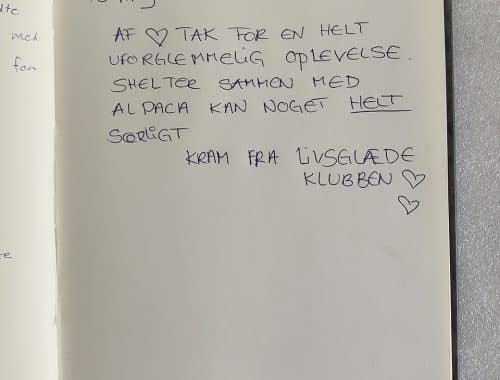 med
AF ♡ TAK FOR EN HELT
UFORGLEMMELIG OPLEVELSE.
SHELTER SAMMEN MED
ALPACA KAN NOGET HELT
SÆRLIGT
KRAM FRA LIVSGLÆDE
KLUBBEN ♡
♡